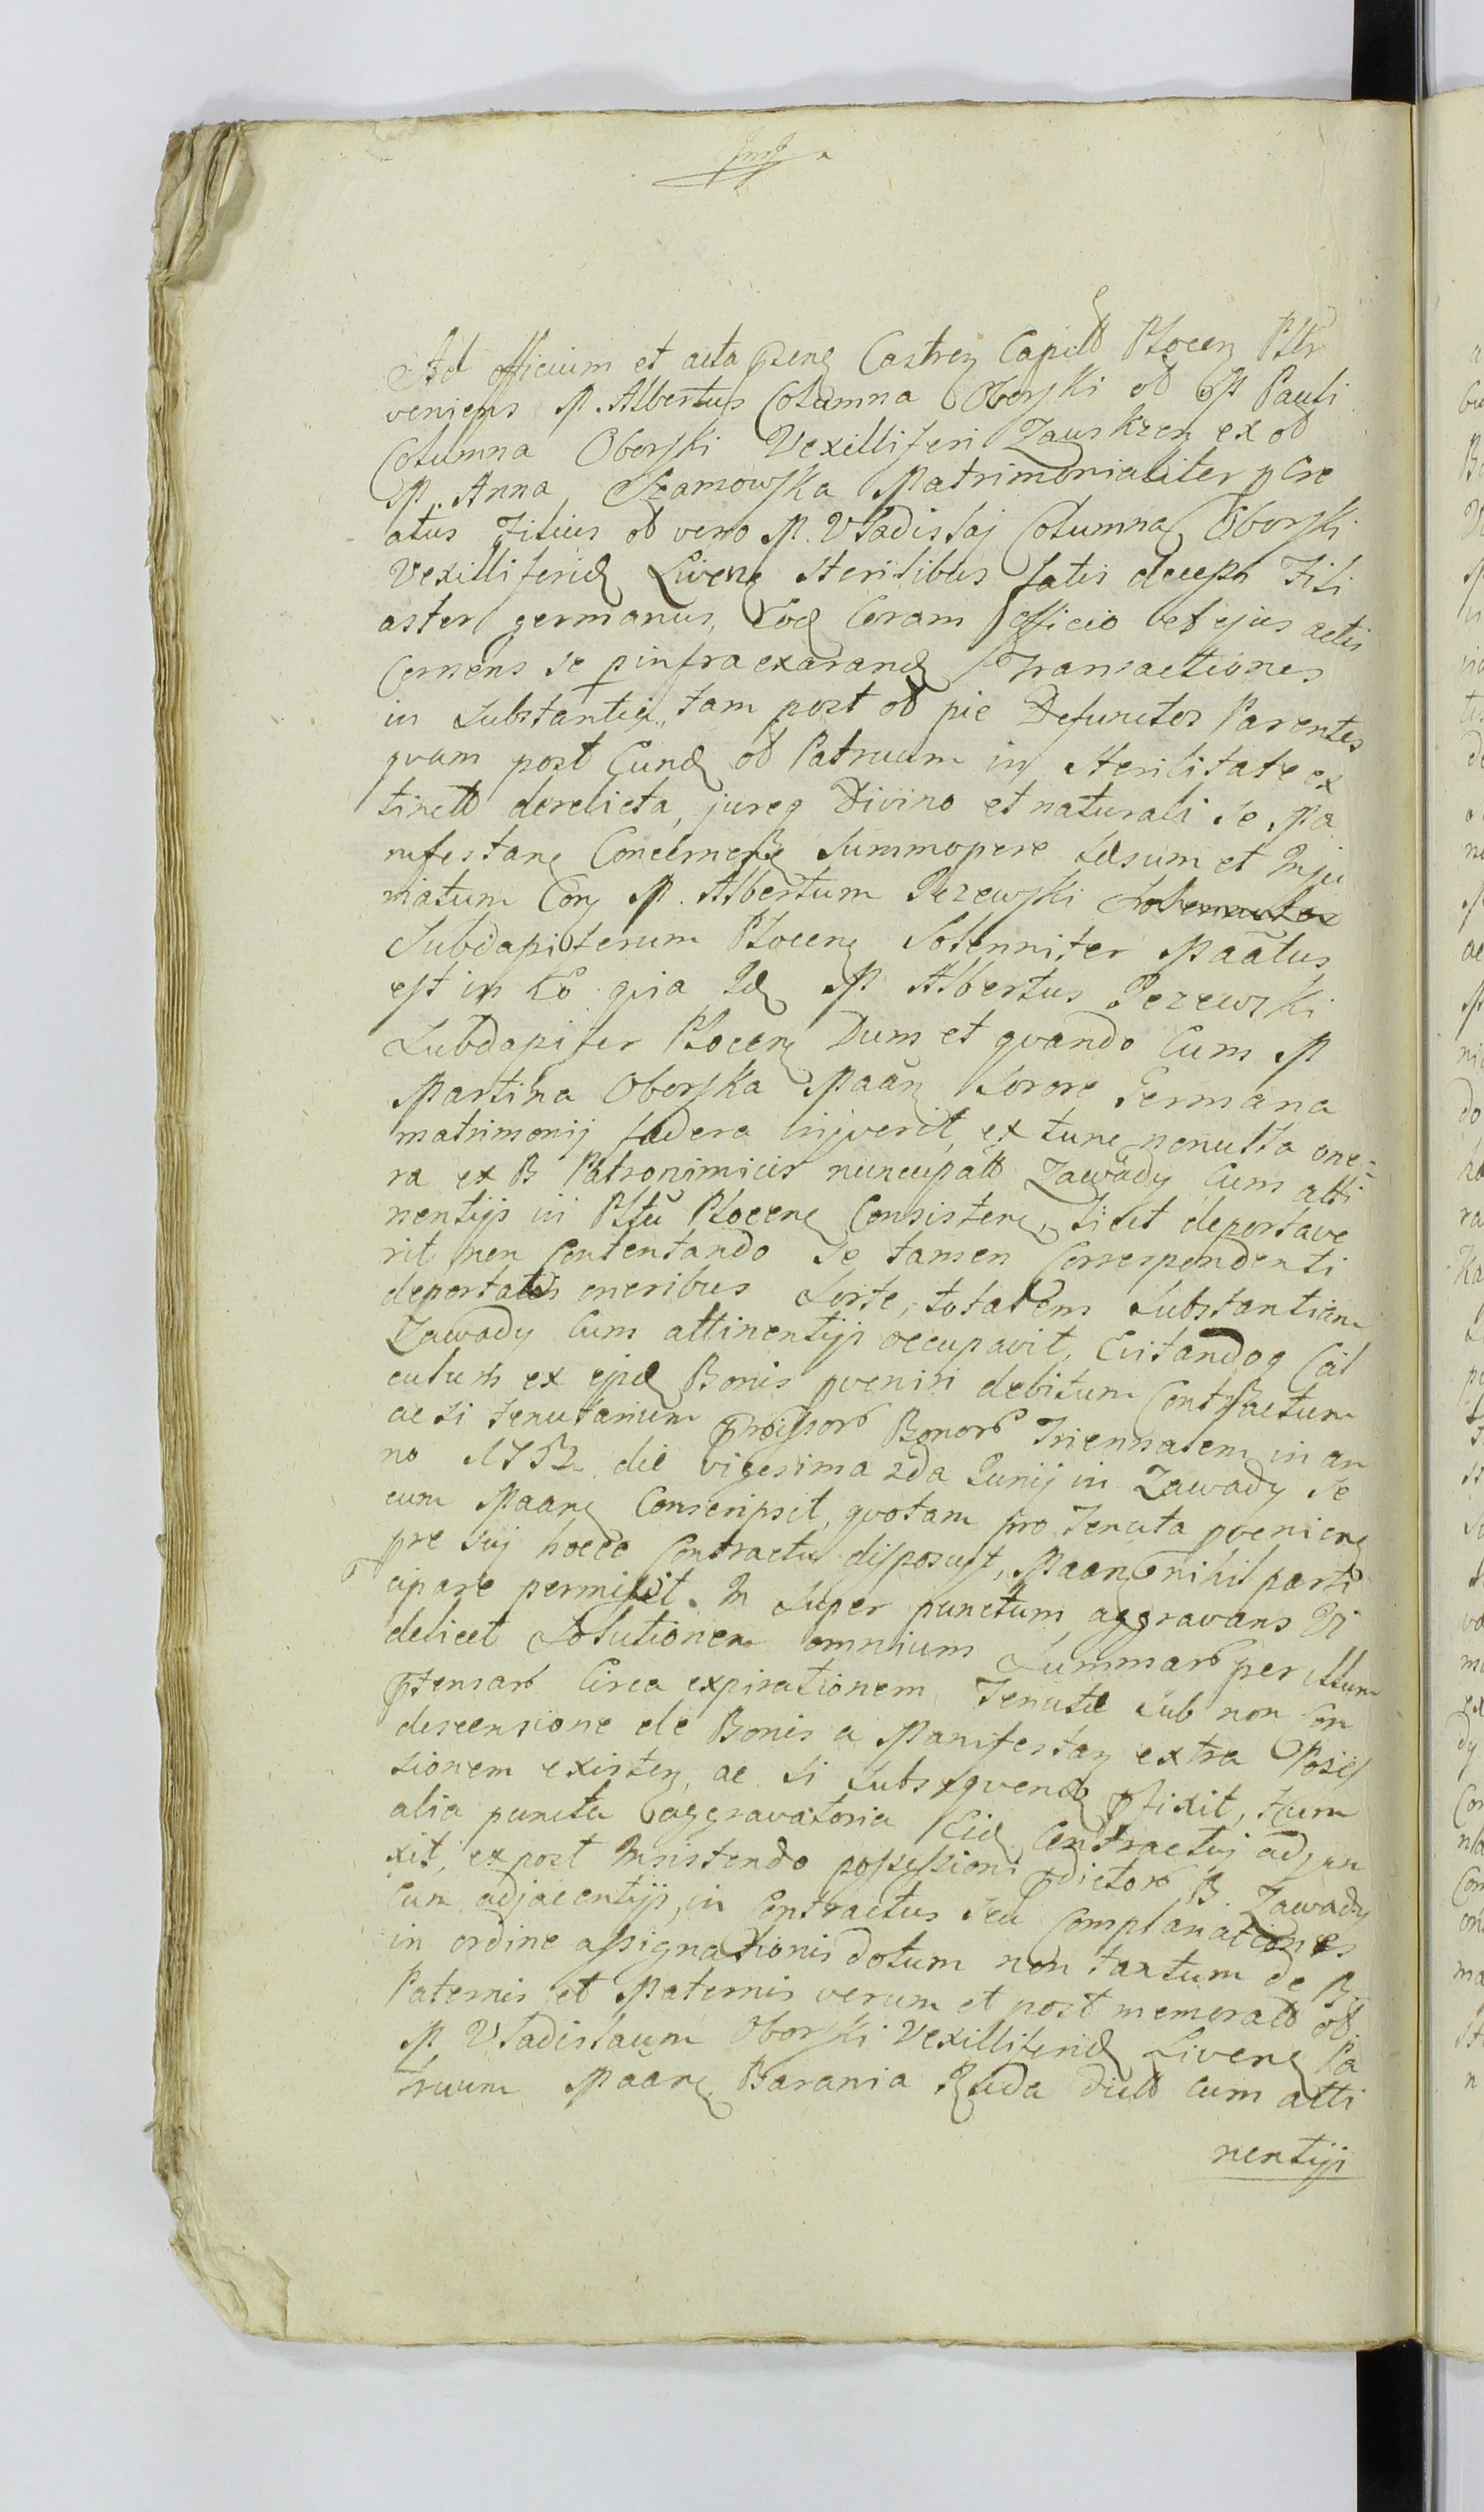 Ad officium et acta pnng Castren Capitl Plocen Plr
veniens M. Albertus Columna Oborski ol M Pauli
Columna Oborski Vexilliferi Zauskzen ex ol
M. Anna Szamowska Matrimonialiter pcre
atus Filius ol vero M. Vladislaj Columna Oborski
Vexilliferid Livenq sterilibus fatis decepti Fili
aster germanus, Eod Coram officio et ejus actis
Cernens se p infra exarand Transactiones
in Substantia, tam post ol pie Defunctos Parentes
qvam post Eund ol Patruum in sterilitate ex
tinctt derelicta, jureq Divino et naturali se Ma
nifestanq Concernente summopere læsum et Inju
riatum Con M. Albertum Jezewski
Subdapiferum Plocenq Solenniter Maatus
est in Eo qvia Id M Albertus Jezewski
Subdapifer Plocenq Dum et qvando Cum M
Martina Oborska Maan Sorore Germana
matrimonij fædera injverit, ex tunc nonulla one=
ra ex B Patronimicis nuncupatt Zawady Cum atti
nentijs in Pttu Plocenq Consistenq, licet deportave
rit non Contentando se tamen Correspondenti
deportatis oneribus sorte, totalem Substantiam
Zawady Cum attinentijs occupavit, Evitandoq Cal
culum ex ejsd Bonis pveniri debitum Contractum
ac si tenutarium Bonor Triennalem in an
no 1752 die vigesima 2da Junij in Zawady Se
cum Maanq Conscripsit, qvotam pro Tenuta pvenienq
pre suj hocce Contractu disposuit, Maanq nihil parti
cipare permisit. In super punctum aggravans Vi
delicet Solutionem omnium Summar per illum
ptensar Circa expirationem Tenutæ sub non Con
descensione de Bonis a Manifestan extra Posses
sionem existen, ac si subseqvend pfixit, tum
alia puncta aggravatoria Eid Contractuj adjun
xit, ex post Insistendo possessioni pdictor B. Zawady
Cum adjacentijs, in Contractus seu Complanationes
in ordine assignationis dotum non tantum de B
Paternis et Maternis verum et post memoratt ol
M Vladislaum Oborski Vexilliferid Livenq Pa
truum Maanq Barania Ruda dictt cum atti
nentijs